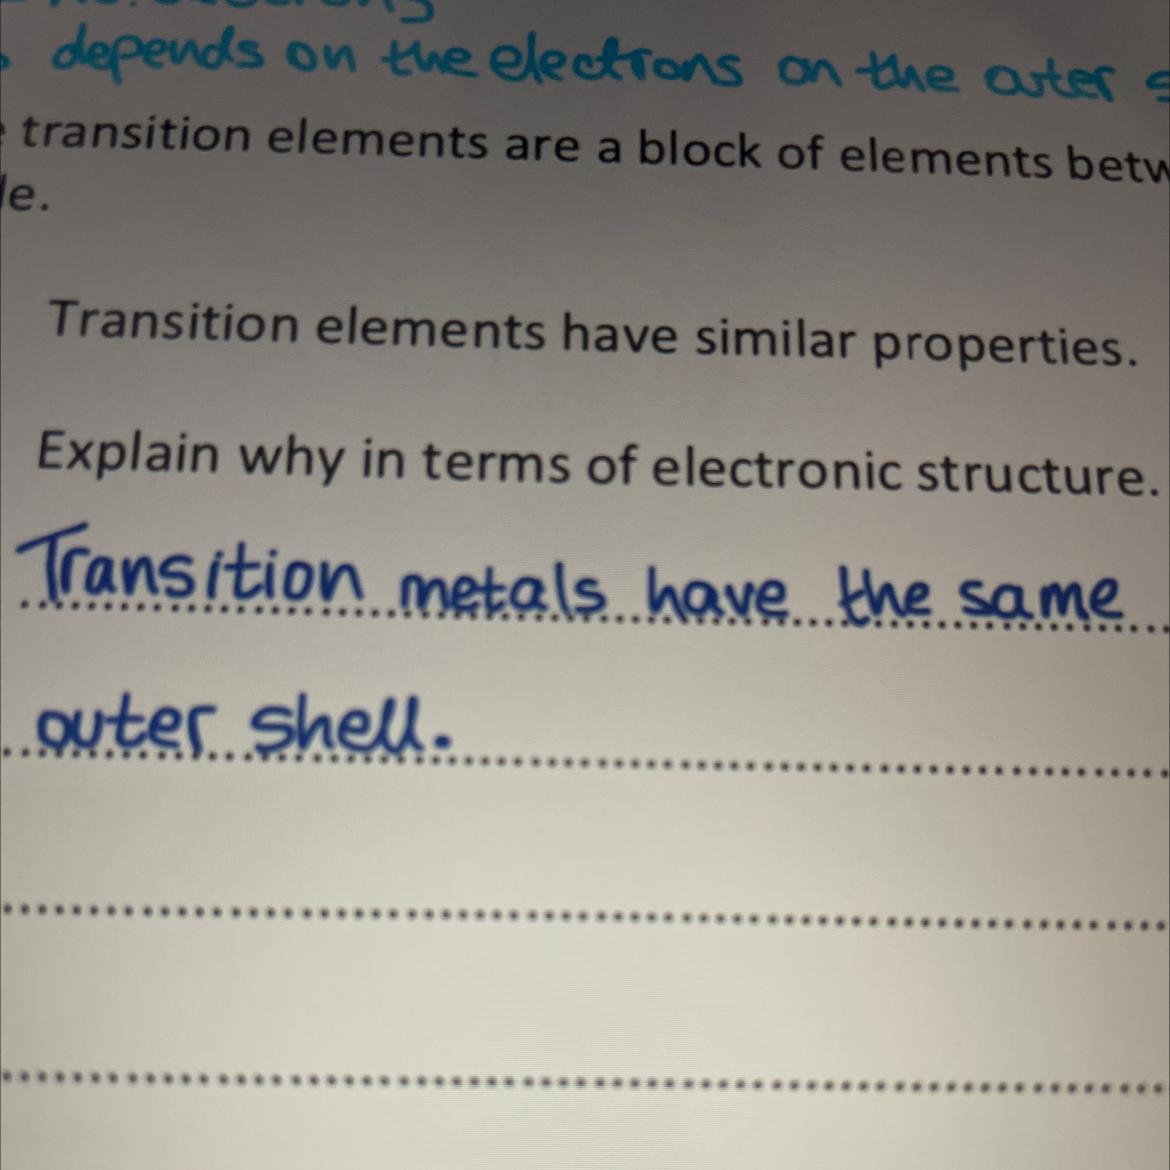 depends on the electrons on the outer s
transition elements are a block of elements betw
le.
Transition elements have similar properties.
Explain why in terms of electronic structure.
Transition metals have the same
outer shell.